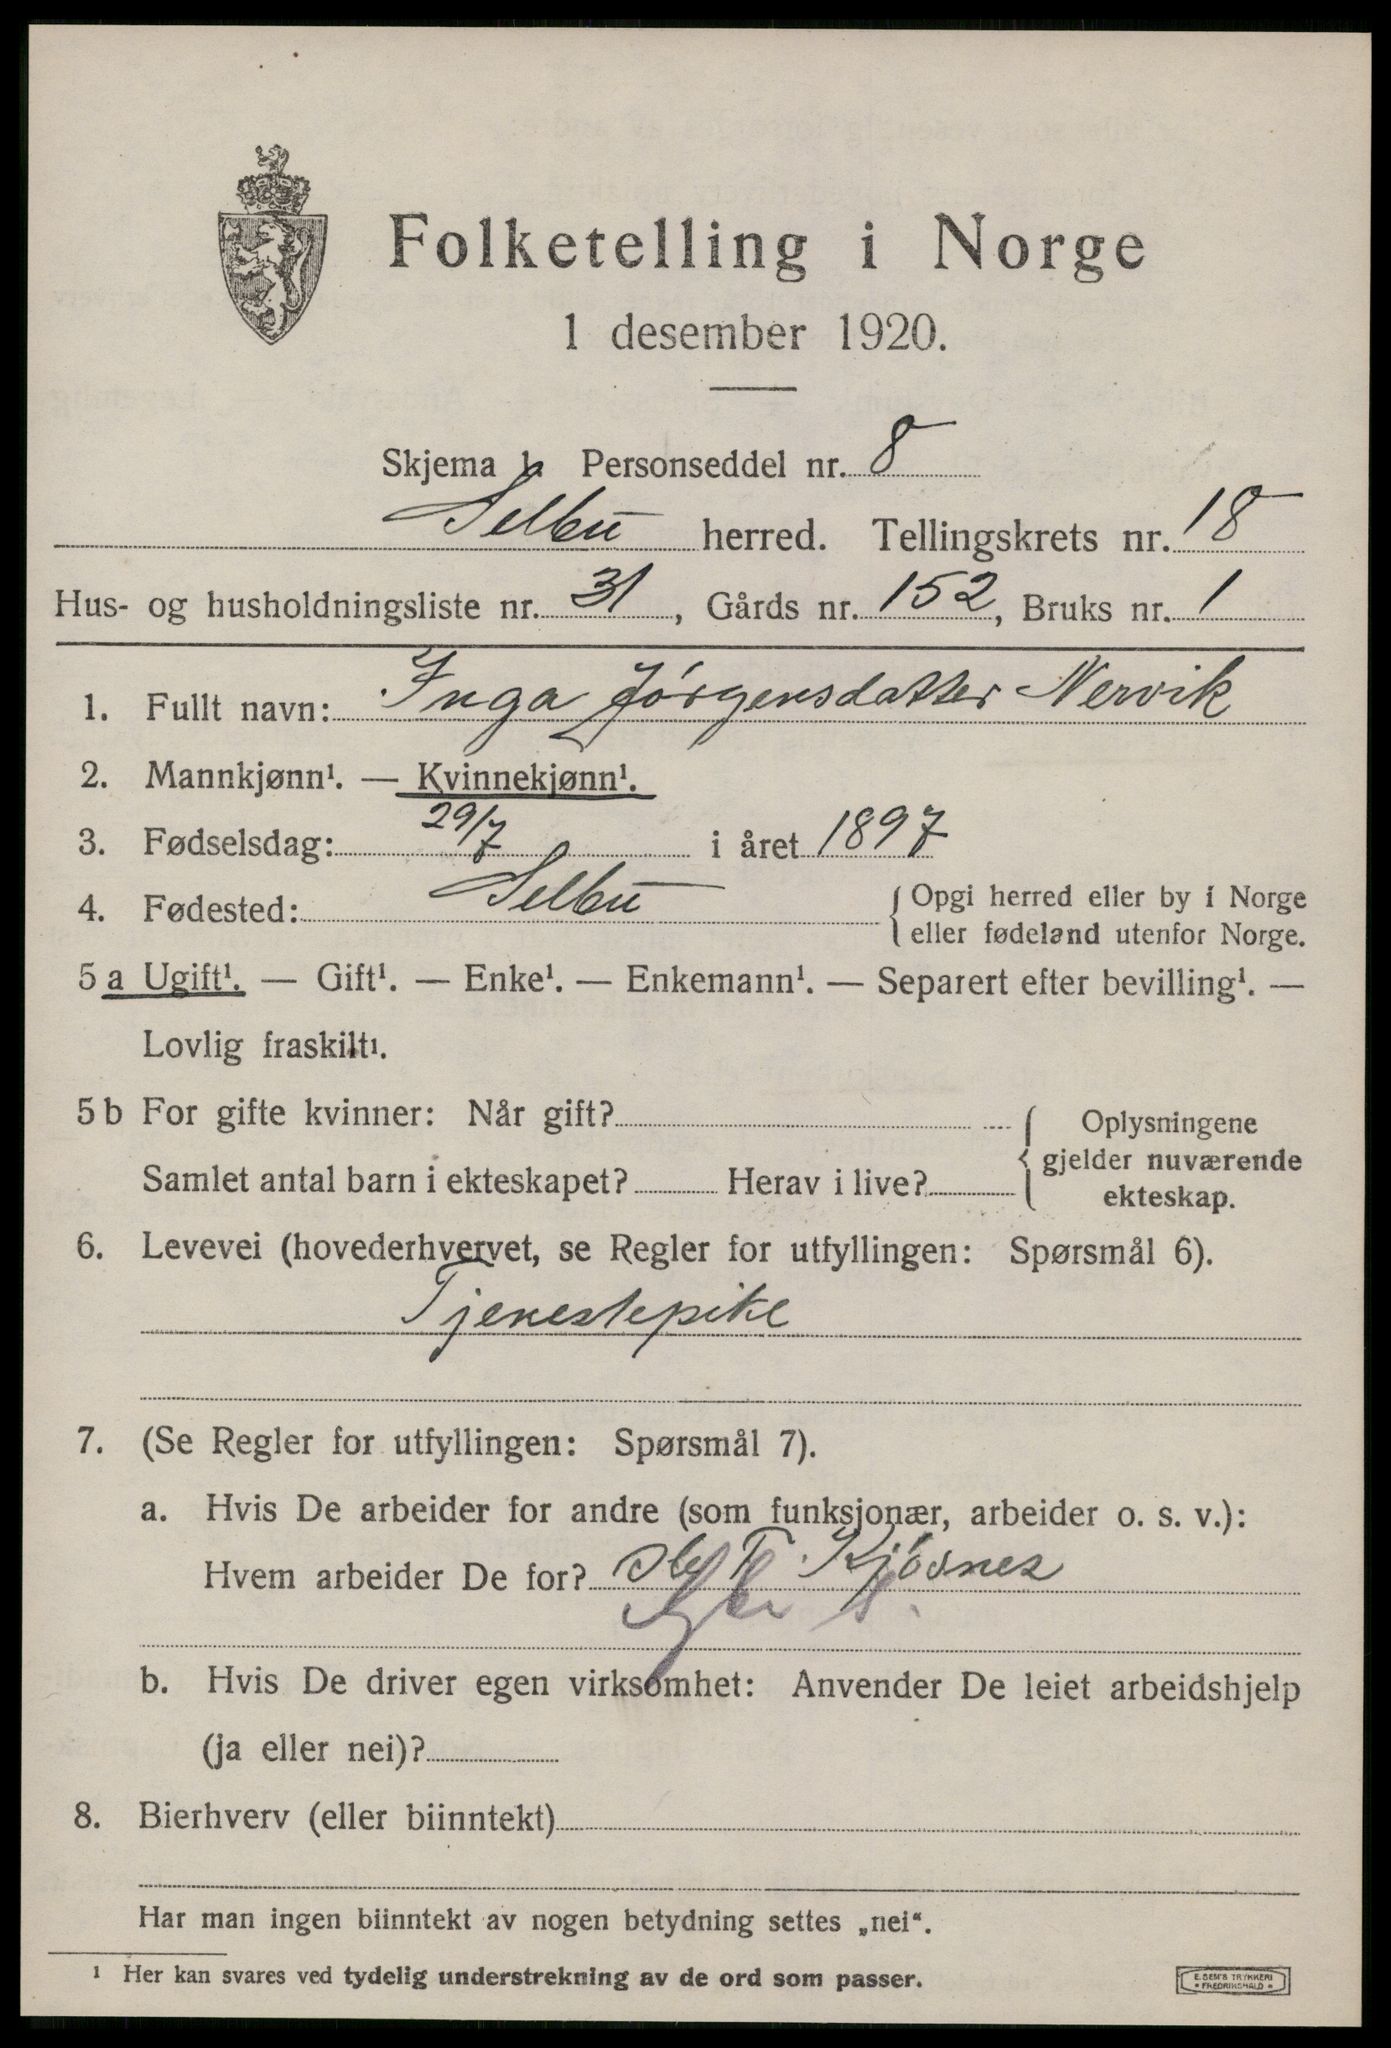 Folketelling i Norge
1 desember 1920.
Skjema 1. Personseddel nr. 8
Selbu herred. Tellingskrets nr. 18
Hus- og husholdningsliste nr. 31, Gårds nr. 152, Bruks nr. 1
1. Fullt navn: Inga Jörgensdatter Nervik
2. Mannkjønn¹. — Kvinnekjønn¹.
3. Fødselsdag: 29/7 i året 1897
4. Fødested: Selbu { Opgi herred eller by i Norge
eller fødeland utenfor Norge.
5 a Ugift¹. — Gift¹. — Enke¹. — Enkemann¹. — Separert efter bevilling¹. —
Lovlig fraskilt¹.
5 b For gifte kvinner: Når gift? { Oplysningene
gjelder nuværende
Samlet antal barn i ekteskapet? Herav i live?
ekteskap.
6. Levevei (hovederhvervet, se Regler for utfyllingen: Spørsmål 6).
Tjenestepike
7. (Se Regler for utfyllingen: Spørsmål 7).
a. Hvis De arbeider for andre (som funksjonær, arbeider o. s. v.):
Hvem arbeider De for? Ole T. Kjösnes
b. Hvis De driver egen virksomhet: Anvender De leiet arbeidshjelp
(ja eller nei)?
8. Bierhverv (eller biinntekt)
Har man ingen biinntekt av nogen betydning settes „nei“.
¹ Her kan svares ved tydelig understrekning av de ord som passer.
E. SEM'S TRYKKERI
• FREDRIKSHALD •